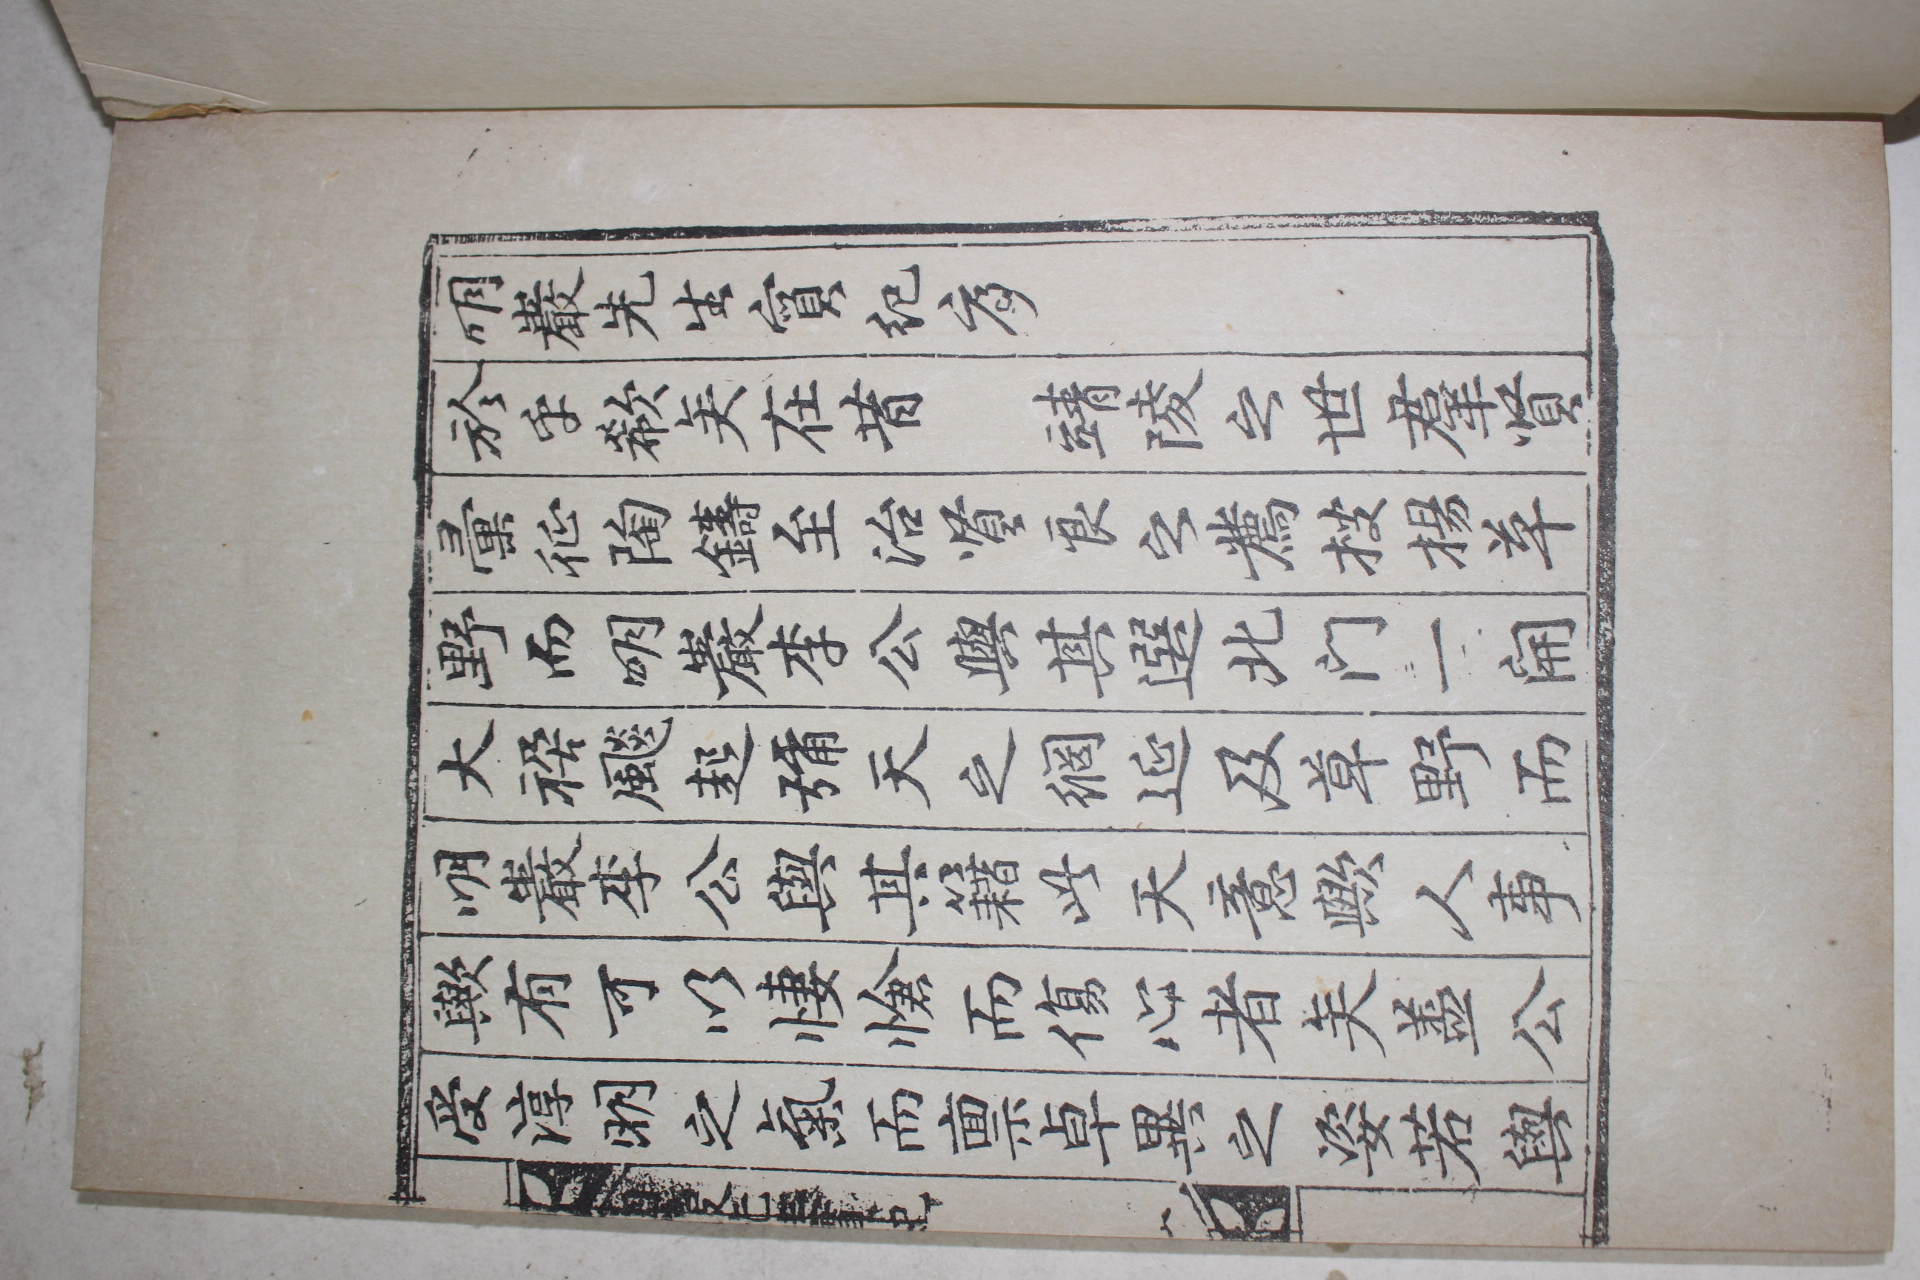 明巖先生實紀序
於乎欷矣在昔　靖陵之世羣賢
彙征陶鑄至治賢良之薦披揚草
野而明巖李公與其選北門一開
大禍颷起彌天之網延及草野而
明巖李公與其籍此天意歟人事
歟有可以悽愴而傷心者矣盖公
受淳明之氣而禀卓異之姿若與